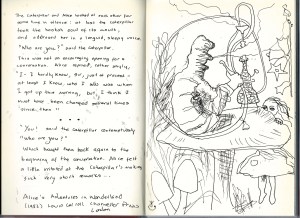 The Caterpillar and Alice looked at each other for
some time in silence: at last the caterpillar
took the hookah out of its mouth,
and addressed her in a languid, sleepy voice.
"Who are you?" said the caterpillar.
This was not an encouraging opening for a
conversation. Alice replied, rather shyly,
"I - I hardly know, sir, just at present -
at least I know who I was when
I got up this morning, but I think I
must have been changed several times
since then."
"You!" said the caterpillar contemptuously
"Who are you?"
Which brought them back again to the
beginning of the conversation. Alice felt
a little irritated at the Caterpillar's making
such very short remarks...
Alice's Adventures in Wonderland
Lewis Carroll
London